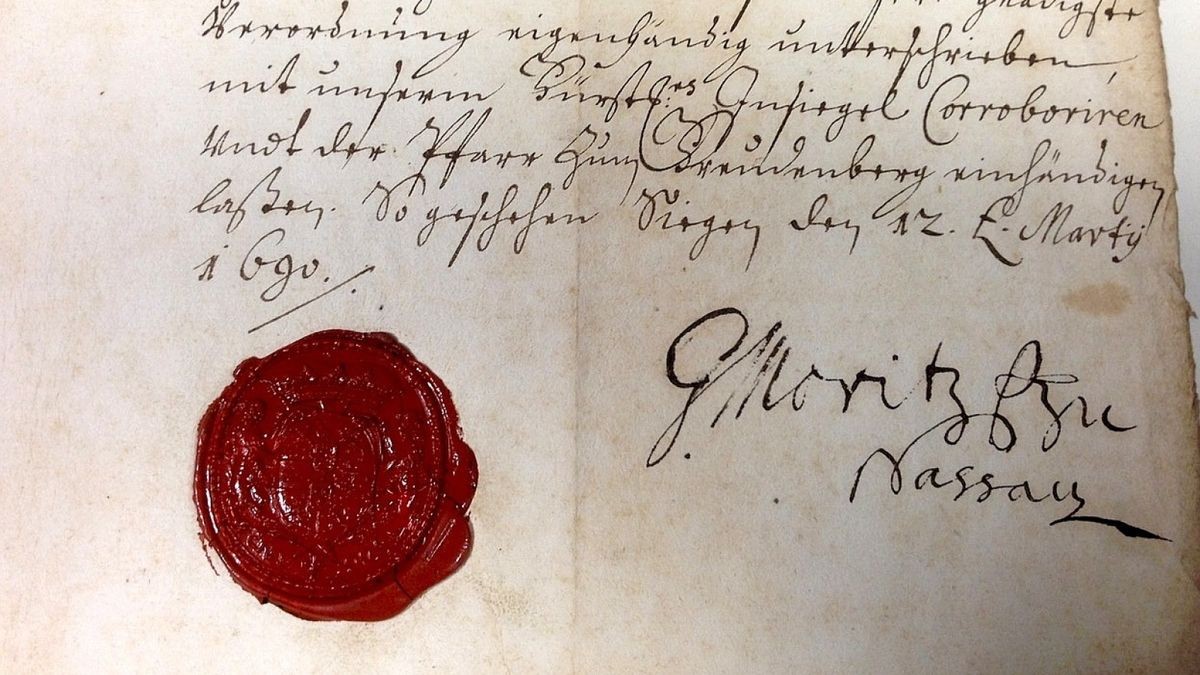 gnädigste
Verordnung eigenhändig unterschrieben,
mit unserm Fürstl.es Insiegel Corroboriren
Undt der Pfarr Zum Freudenberg einhändigen
laßen. So geschehen Siegen den 12. Martij
1690.
Moritz F zu
Nassau